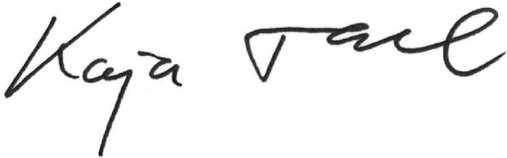 Kaja Tael